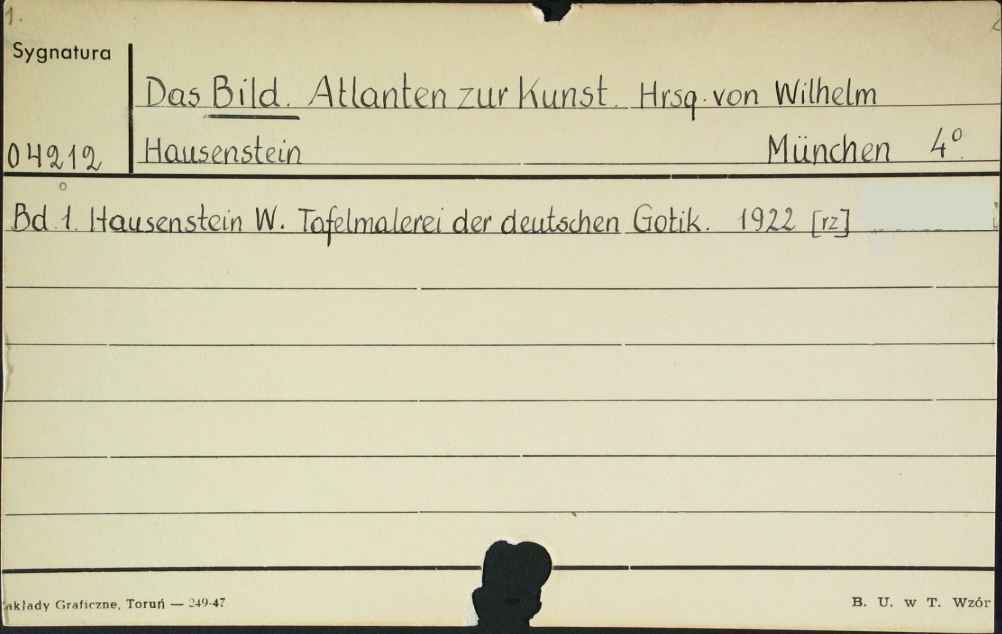 1.
Sygnatura
Das Bild. Atlanten zur Kunst. Hrsg. von Wilhelm
04212 Hausenstein München 4°
Bd. 1. Hausenstein W. Tafelmalerei der deutschen Gotik. 1922 [rz]
akłady Graficzne, Toruń — 249-47 B. U. w T. Wzór